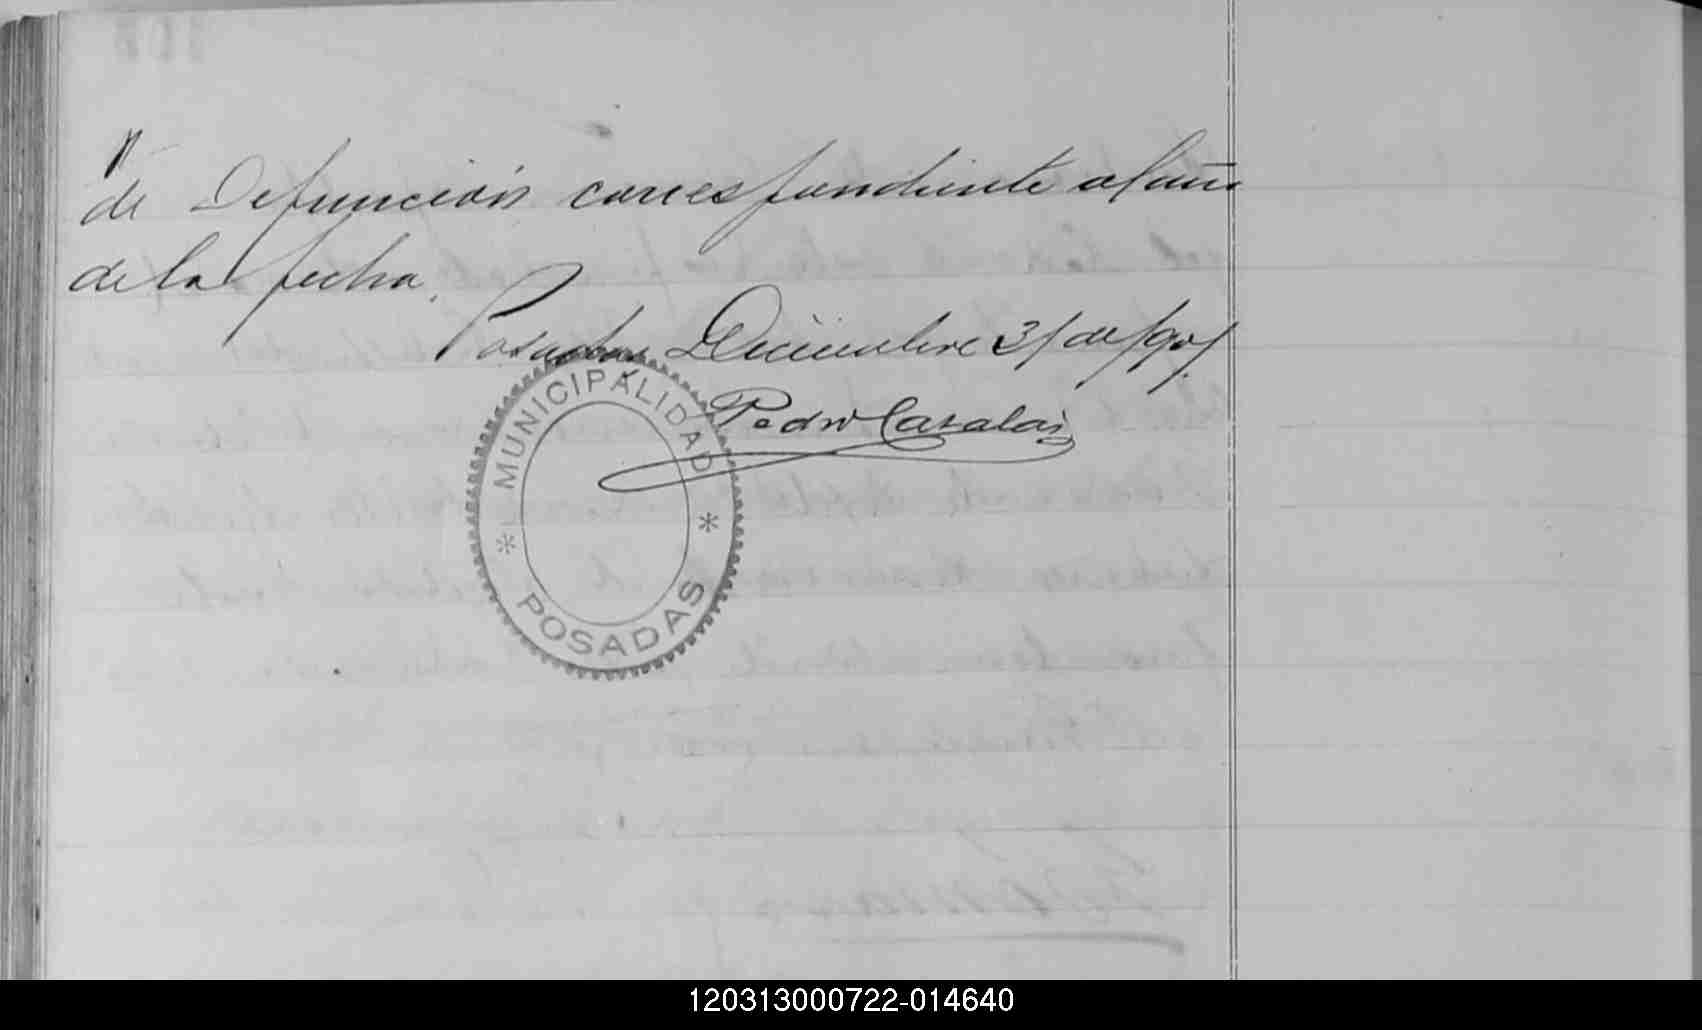 de Defunción correspondiente al año
de la fecha.
Posadas Diciembre 31 de 1901.
Pedro Casalas
MUNICIPALIDAD
* *
POSADAS
120313000722-014640